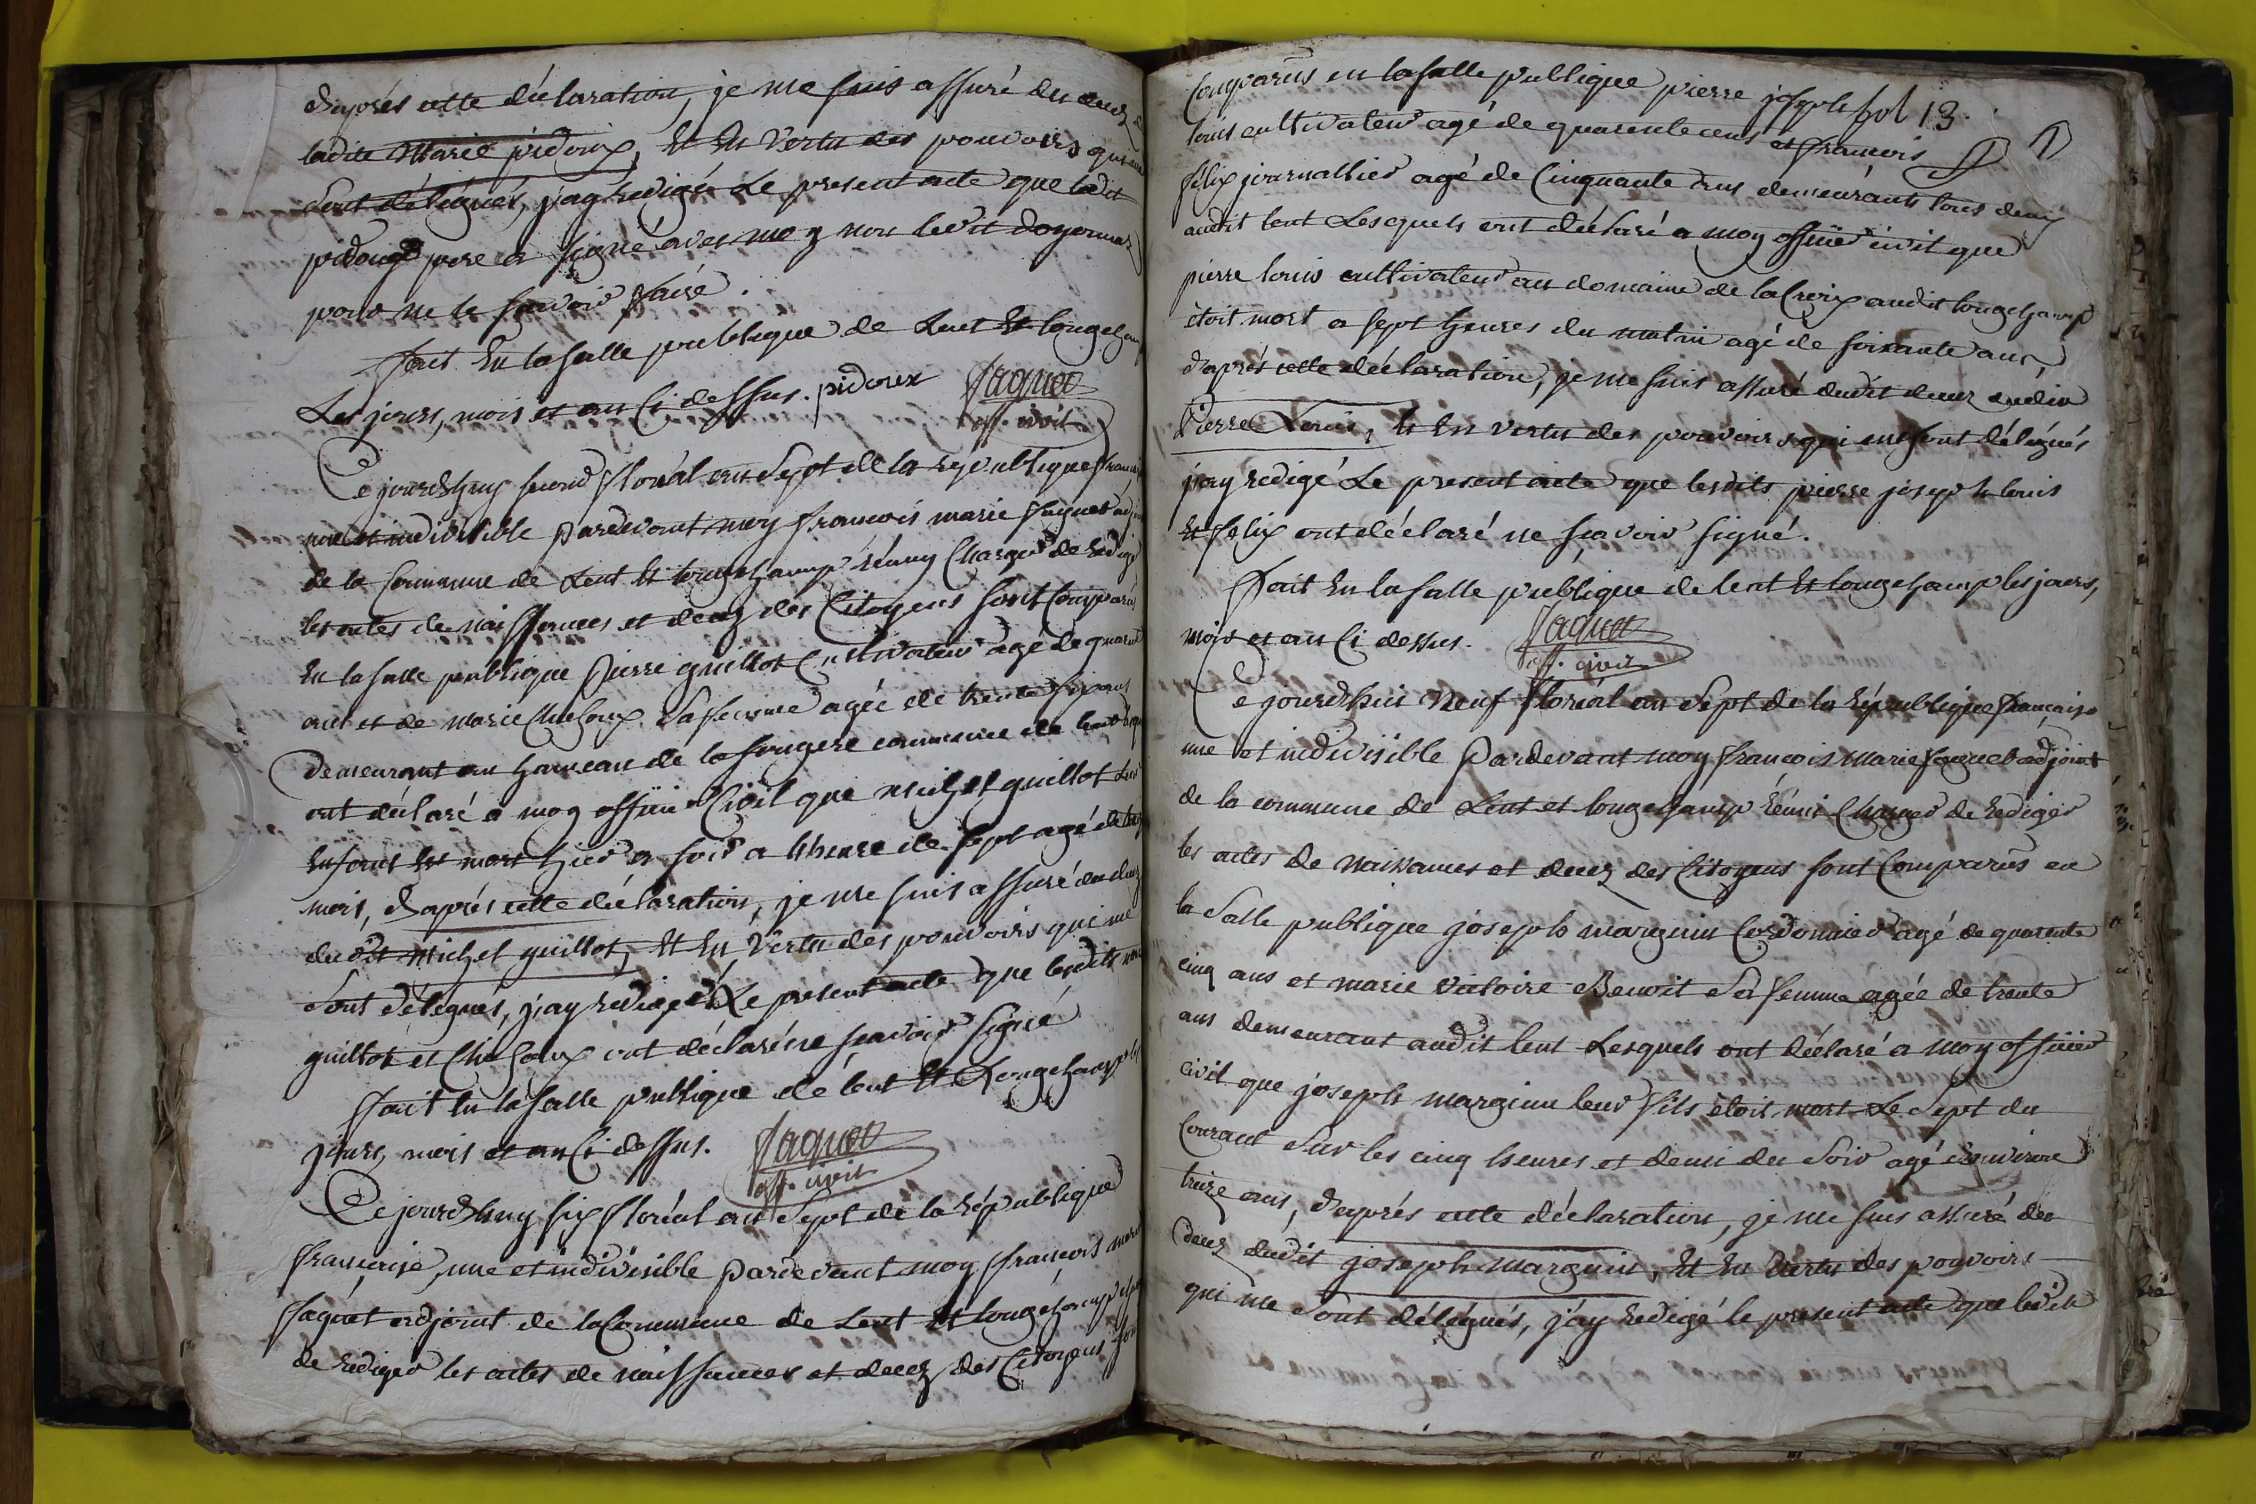 d'aprés cette déclaration, je me suis assuré du decez de
ladite Marie pidoux, Et En Vertu des pouvoirs qui me
sont délégués, j'ay redigé Le present acte que ledit
pidoux pere a signé avec moy non ledit
pour ne le sçavoir faire.
Fait En la salle publique de Lent Et longchamp
Les jours, mois et an ci dessus. pidoux Faguet
off. civil
Ce jourdhuy second floréal an Sept de la république française
une et indivisible pardevant moy francois marie faguet adjoint
de la commune de Lent Et longchamp réuny Charger de rediger
les actes de naissances et decez des Citoyens sont Comparus
En la salle publique pierre guillot Cultivateur agé de quarante
ans et de marie Chuchoux sa femme agée de trente six ans
demeurant au hameau de la fougere commune de lent
ont déclaré a moy officier Civil que michel guillot Leur
Enfant Est mort hier a soir a L'heure de sept agé de
mois, d'aprés cette déclaration, je me suis assuré du decez
dudit Michel guillot, Et En Vertu des pouvoirs qui me
sont délégués, j'ay redigé Le present acte que lesdits
guillot et Chuchoux ont déclaré ne sçavoir signé
Fait En la salle publique de lent Et Longchamp les
jours, mois et an Ci dessus. Faguet
off. civil
Ce jourdhuy six floréal an Sept de la république
française, une et indivisible pardevant moy francois marie
faguet adjoint de la Commune de Lent Et longchamp
de rediger les actes de naissances et decez des Citoyens sont
Comparus en la salle publique pierre joseph fol 13.
louis cultivateur agé de quarente ans et francois
félix journallier agé de Cinquante ans demeurants tous deux
audit lent Lesquels ont déclaré a moy officier civil que
pierre louis cultivateur au domaine de la Croix audit longchamp
étoit mort a sept heures du matin agé de soixante ans,
d'aprés cette déclaration, je me suis assuré dudit decez dudit
Pierre Louis, Et En vertu des pouvoirs qui me sont délégués
j'ay redigé Le present acte que lesdits pierre joseph louis
Et félix ont déclaré ne sçavoir signé.
Fait En la salle publique de lent Et longchamp les jours,
mois et an Ci dessus. Faguet
off. civil
Ce jourdhui Neuf floréal an Sept de la république française
une et indivisible pardevant moy francois Marie faguet adjoint
de la commune de Lent et longchamp réunis Charger de rediger
les actes de naissances et decez des Citoyens sont Comparus en
la Salle publique joseph marguin Cordonnier agé de quarente
cinq ans et marie victoire Benoit sa femme agée de trente
ans demeurant audit lent Lesquels ont déclaré a moy officier
civil que joseph marguin leur fils étoit mort Le Sept du
Courant Sur les cinq heures et demi du Soir agé d'environ
treize ans, d'aprés cette déclaration, je me suis assuré du
decez dudit joseph marguin, Et En Vertu des pouvoirs
qui me sont délégués, j'ay redigé le present acte que ledit